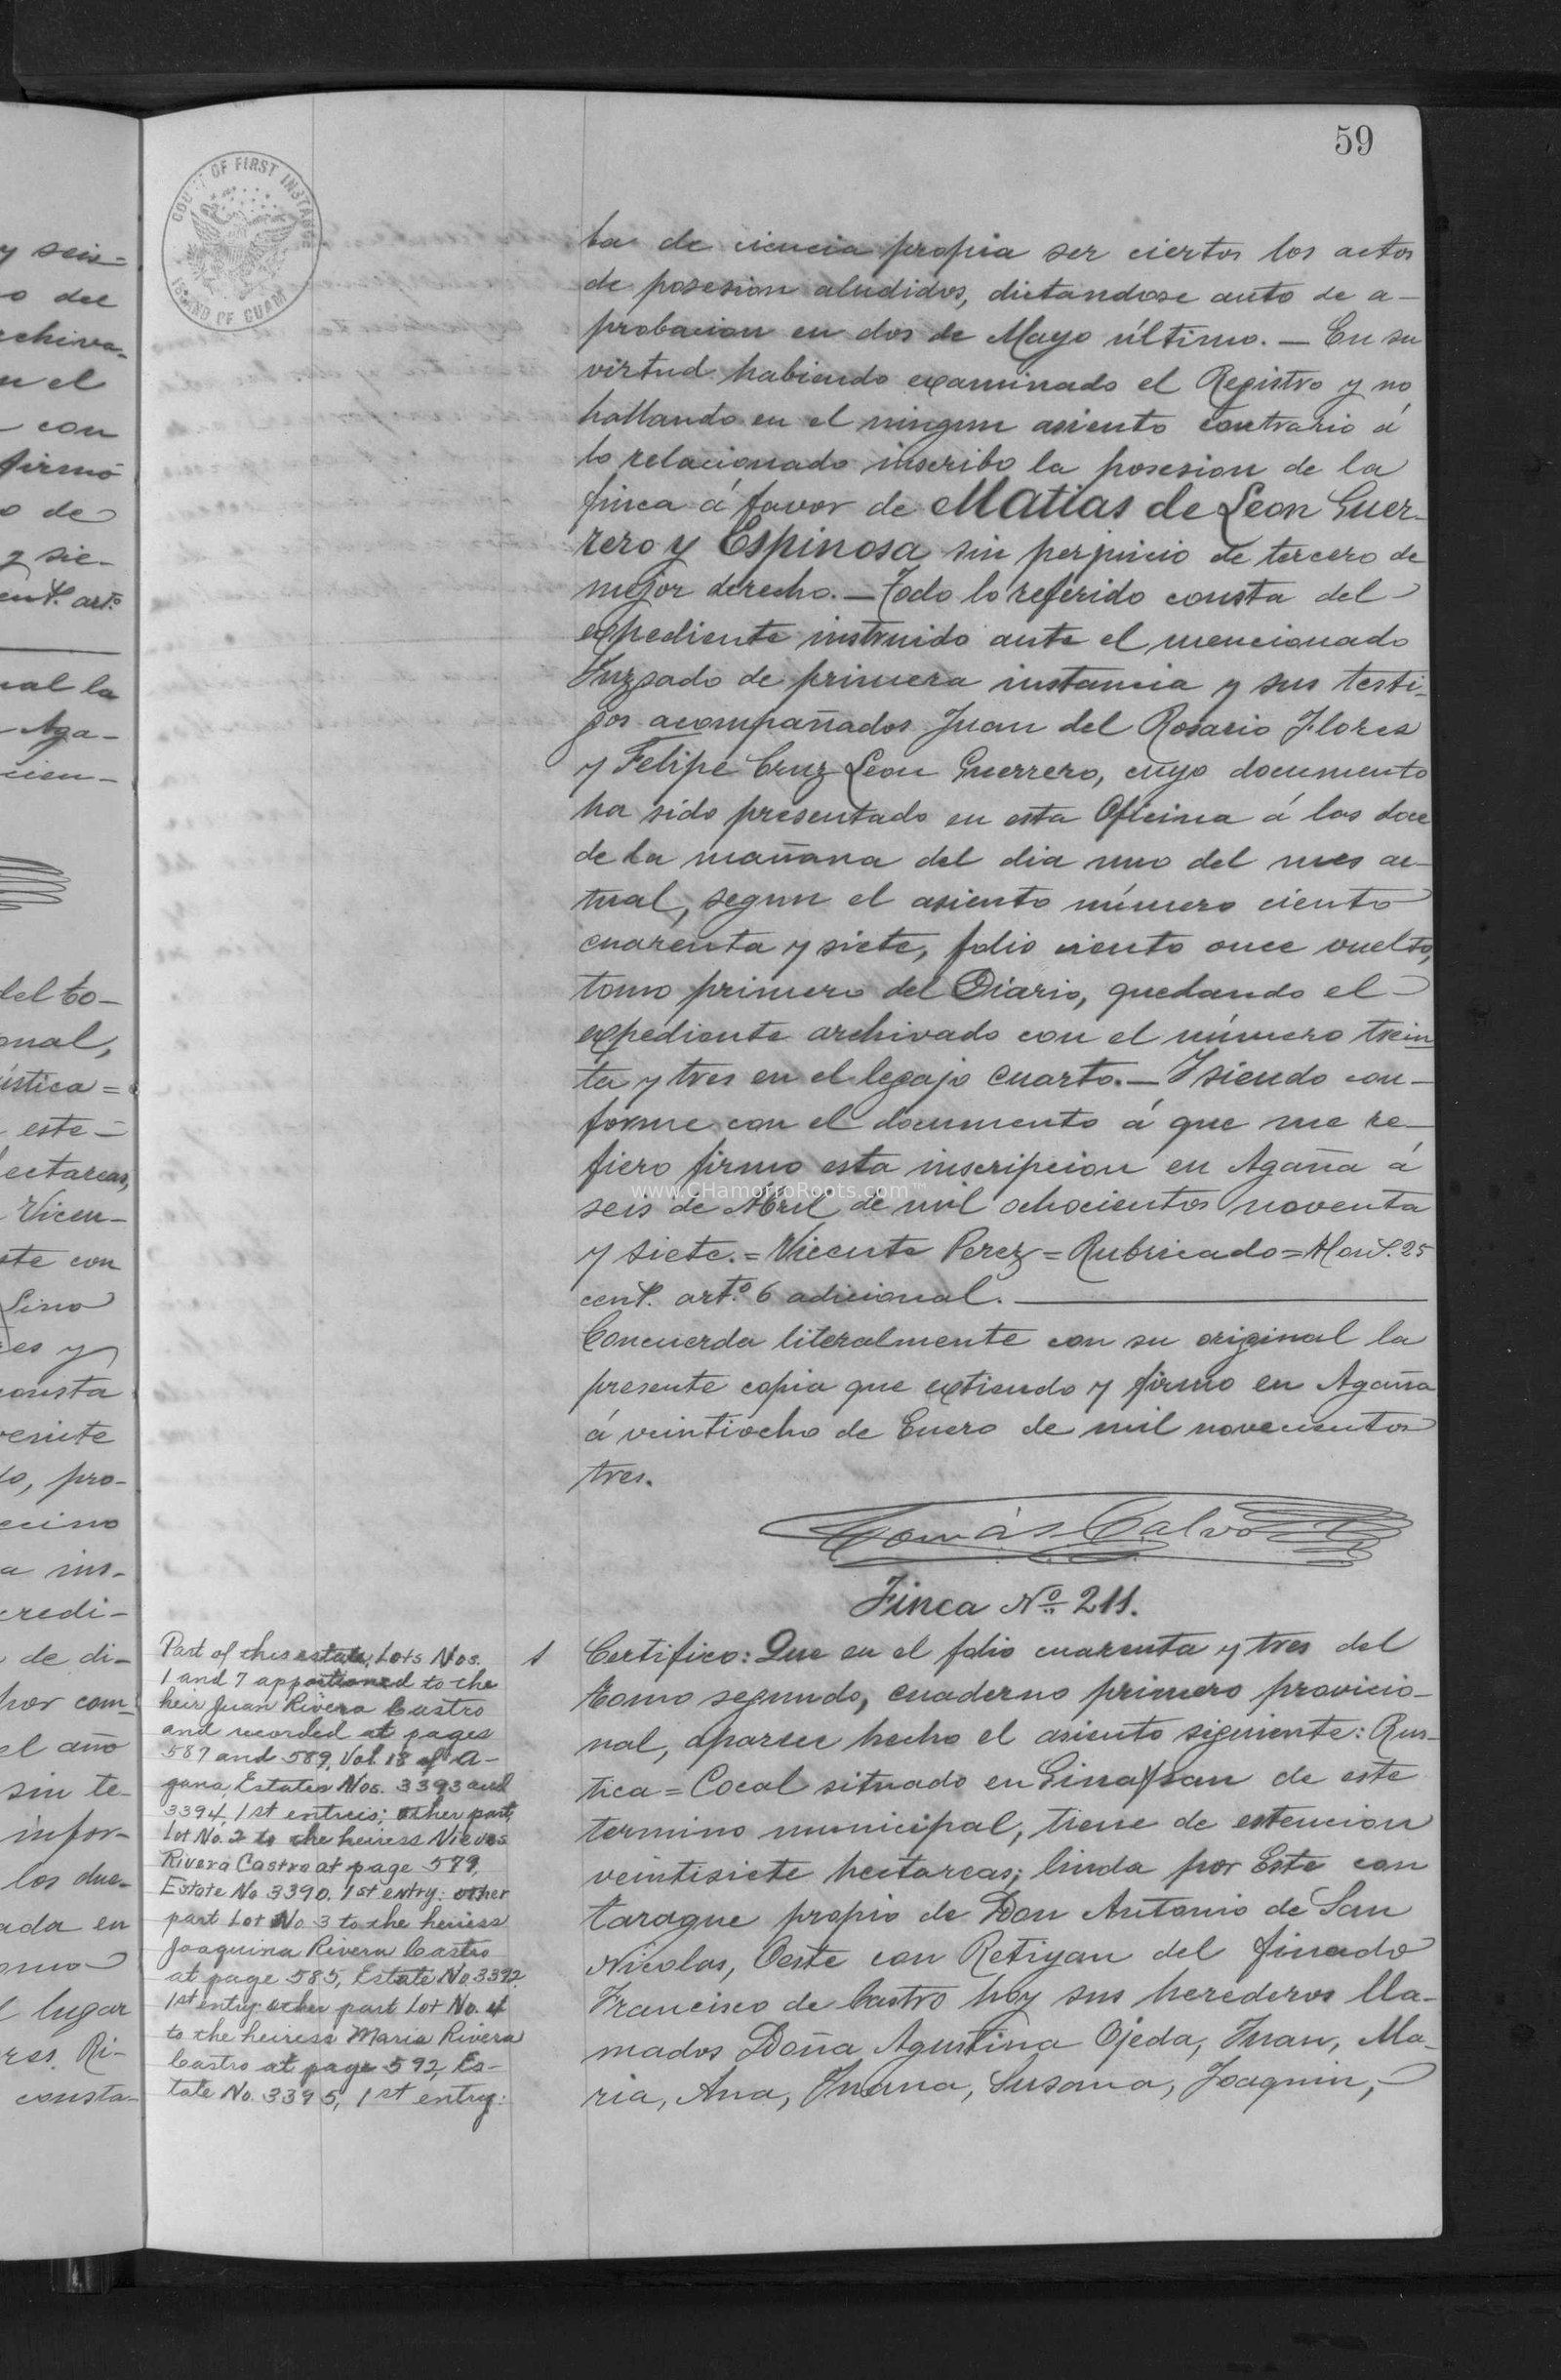 59
COURT OF FIRST INSTANCE
ISLAND OF GUAM
y seis=
o del
rchiva-
en el
con
firmó
o de
y sie-
cent. artº
nal la
Aga-
cien-
del to-
onal,
ústica =
este
hectareas,
Vicen-
ste con
Lino
es y
consta
veinte
to, pro-
ecino
a ins-
credi-
de di-
por com-
el año
sin te-
infor-
los due-
ada en
omo
l lugar
res Ri-
consta-
ta de ciencia propia ser ciertos los actos
de posesion aludidos, dictandose auto de a-
probacion en dos de Mayo último. — En su
virtud habiendo examinado el Registro y no
hallando en el ningun asiento contrario á
lo relacionado inscribo la posesion de la
finca á favor de Matias de Leon Guer-
rero y Espinosa sin perjuicio de tercero de
mejor derecho. — Todo lo referido consta del
expediente instruido ante el mencionado
Juzgado de primera instancia y sus testi-
gos acompañados Juan del Rosario Flores
y Felipe Cruz Leon Guerrero, cuyo documento
ha sido presentado en esta Oficina á las doce
de la mañana del dia uno del mes ac-
tual, segun el asiento número ciento
cuarenta y siete, folio ciento once vuelto,
tomo primero del Diario, quedando el
expediente archivado con el número trein
ta y tres en el legajo cuarto. — Y siendo con-
forme con el documento á que me re-
fiero firmo esta inscripcion en Agaña á
www.CHamorroRoots.com™
seis de Abril de mil ochocientos noventa
y siete. = Vicente Perez = Rubricado = Hon$. 25
cent. artº 6 adicional.
Concuerda literalmente con su original la
presente copia que extiendo y firmo en Agaña
á veintiocho de Enero de mil novecientos
tres.
Tomás Calvo
Finca Nº 211.
Part of this estate, Lots Nos.
1 and 7 apportioned to the
heir Juan Rivera Castro
and recorded at pages
587 and 589, Vol. 18 of A-
gana, Estates Nos. 3393 and
3394, 1st entreis; other part,
Lot No. 2 to the heiress Nieves
Rivera Castro at page 579,
Estate No 3390, 1st entry; other
part Lot No. 3 to the heiress
Joaquina Rivera Castro
at page 585, Estate No. 3392,
1st entry; other part Lot No. 4
to the heiress Maria Rivera
Castro at page 592, Es-
tate No. 3395, 1st entry:
1
Certifico: Que en el folio cuarenta y tres del
tomo segundo, cuaderno primero provicio-
nal, aparece hecho el asiento siguiente: Rus-
tica = Cocal situado en Sinafsan de este
termino municipal, tiene de estencion
veintisiete hectareas; linda por Este con
tarague propio de Don Antonio de San
Nicolas, Oeste con Retiyan del finado
Francisco de Castro hoy sus herederos lla-
mados Doña Agustina Ojeda, Juan, Ma-
ria, Ana, Juana, Susana, Joaquin,